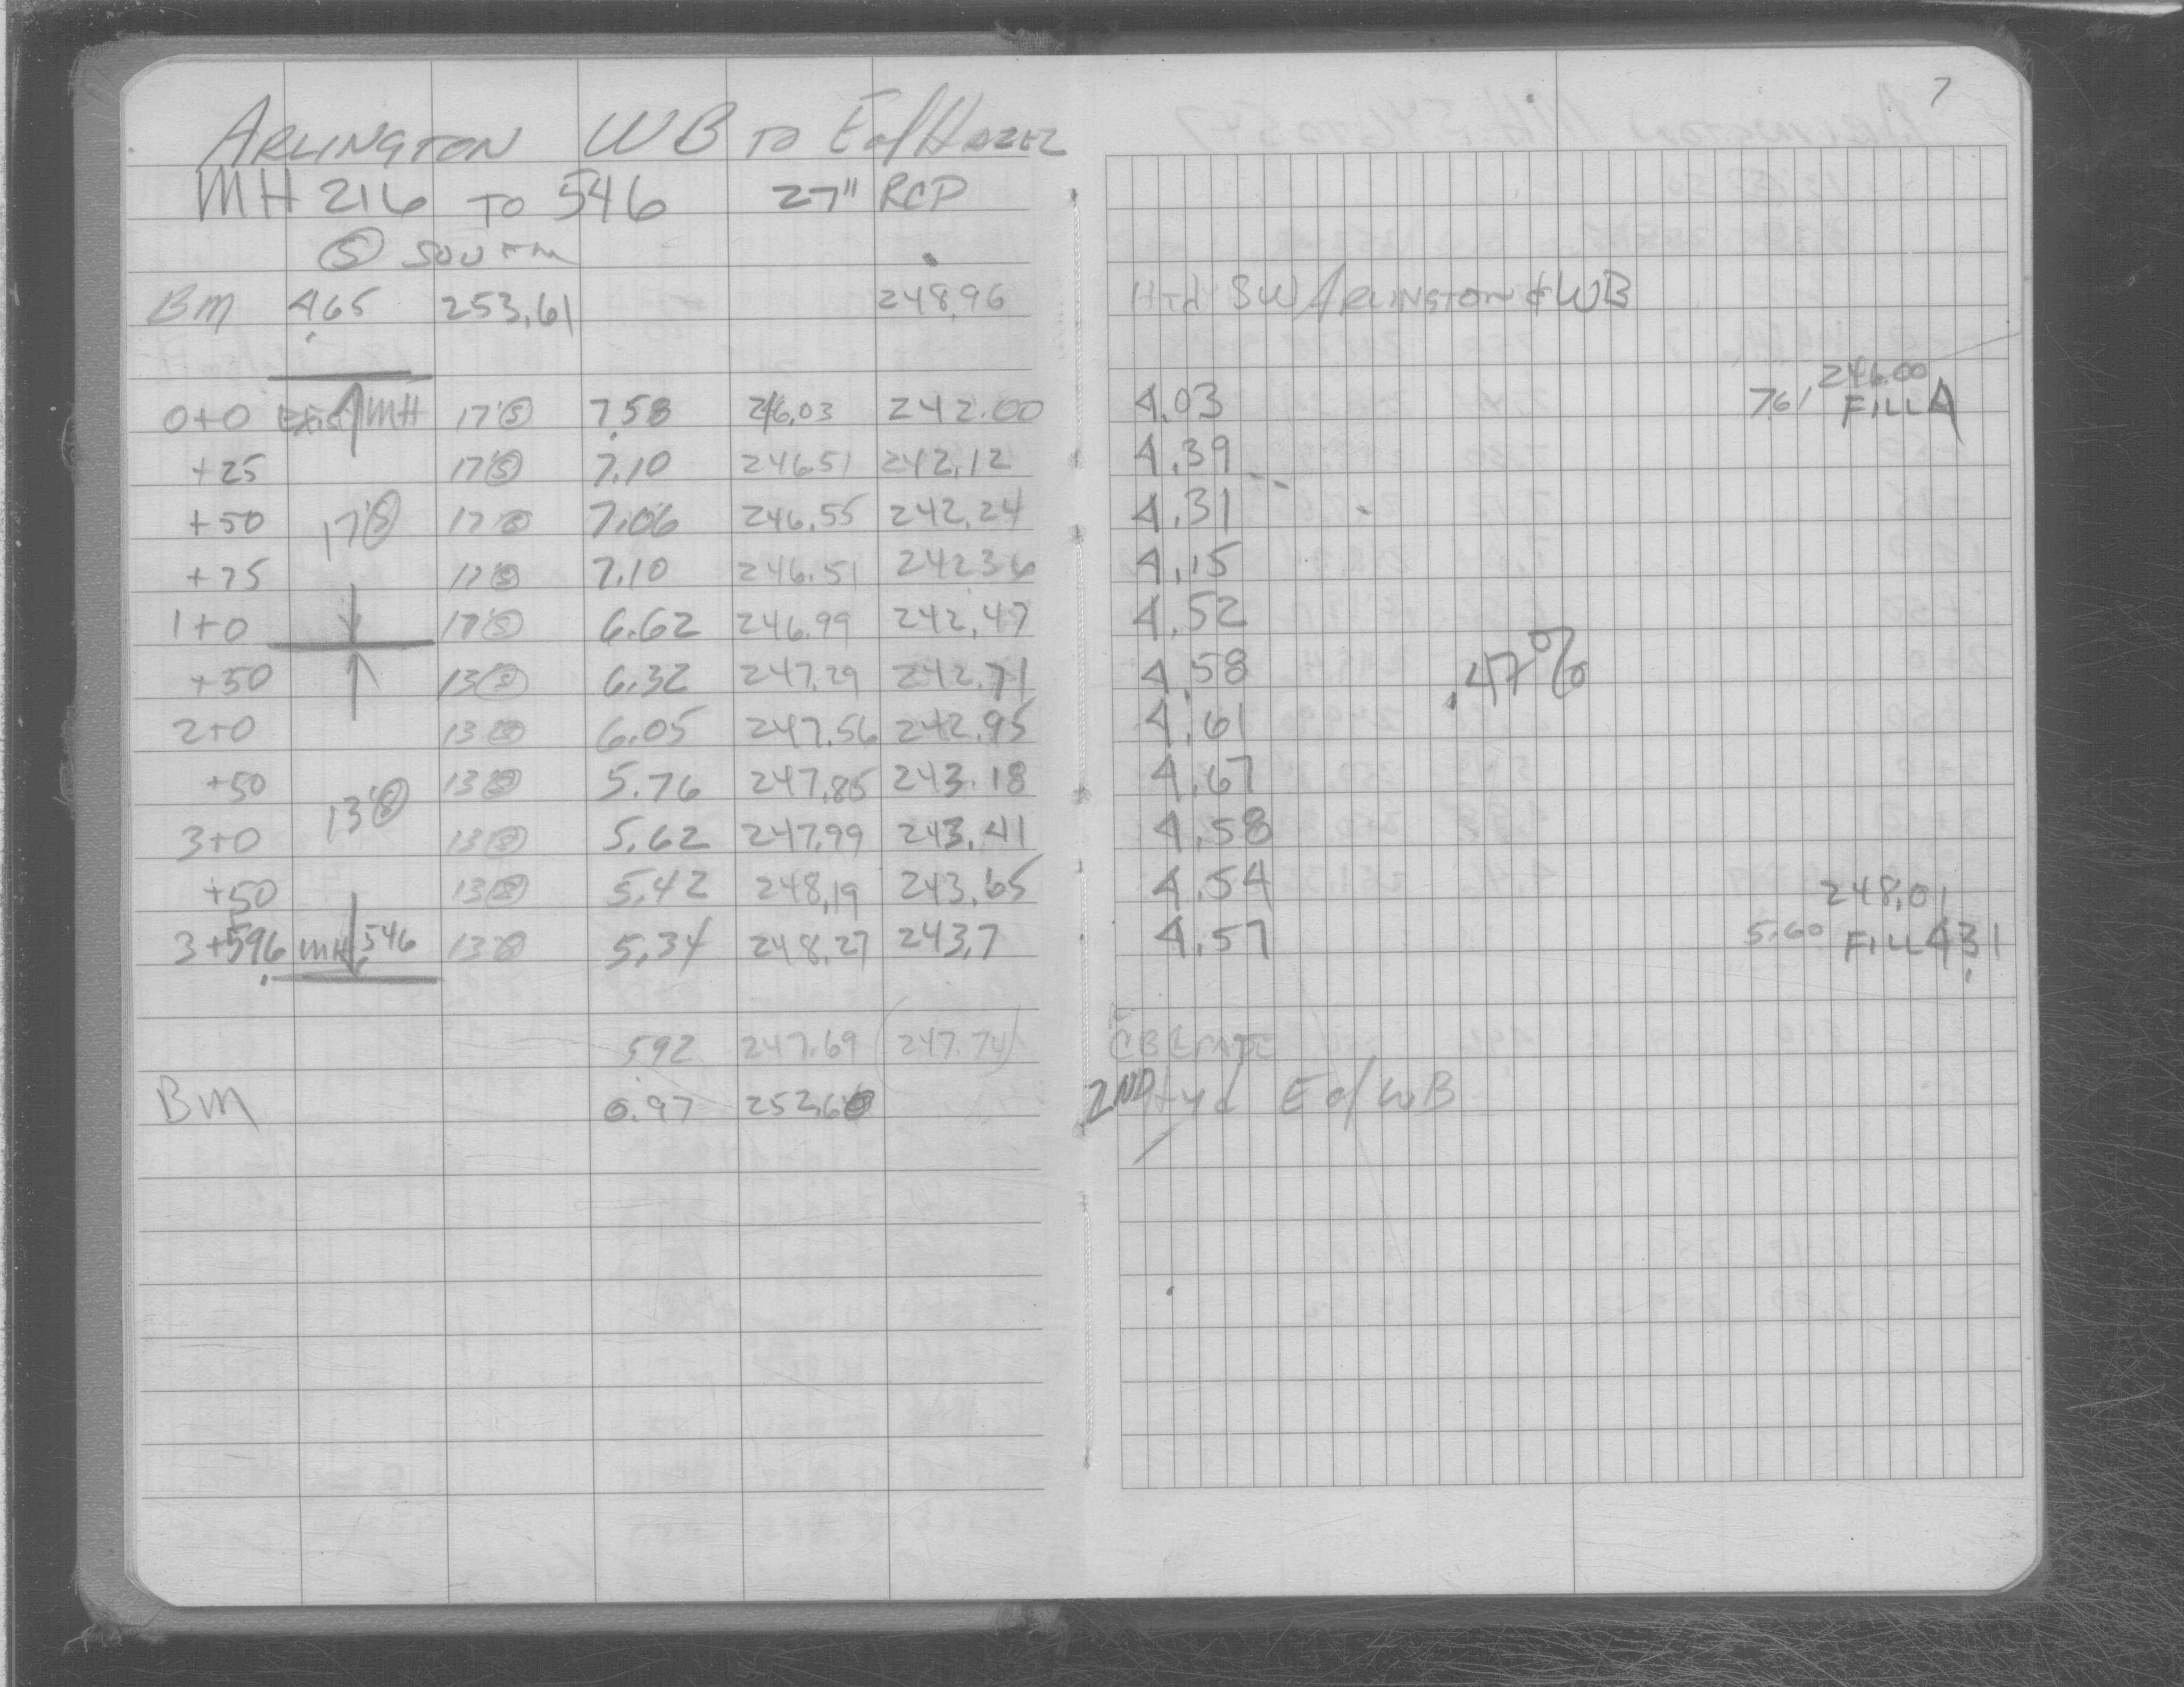 7
ARLINGTON WB TO E of HAZEL
MH 216 TO 546 27" RCP
Ⓢ SOUTH
BM 4.65 253.61 248.96 Hyd SW ARLINGTON & WB
246.00
0+0 EXIST MH 17'Ⓢ 7.58 246.03 242.00 4.03 7.61 FILL 4
+25 17'Ⓢ 7.10 246.51 242.12 4.39
+50 17'Ⓢ 17'Ⓢ 7.06 246.55 242.24 4.31
+75 17'Ⓢ 7.10 246.51 242.36 4.15
1+0 17'Ⓢ 6.62 246.99 242.47 4.52
+50 13'Ⓢ 6.32 247.29 242.71 4.58 .47%
2+0 13'Ⓢ 6.05 247.56 242.95 4.61
+50 13'Ⓢ 5.76 247.85 243.18 4.67
3+0 13'Ⓢ 13'Ⓢ 5.62 247.99 243.41 4.58
+50 13'Ⓢ 5.42 248.19 243.65 4.54
248.01
3+596 MH 546 13'Ⓢ 5.34 248.27 243.7 4.57 5.60 FILL 431
592 247.69 (247.74) CB GRATE
BM 0.97 252.64 2ND Hyd E of WB